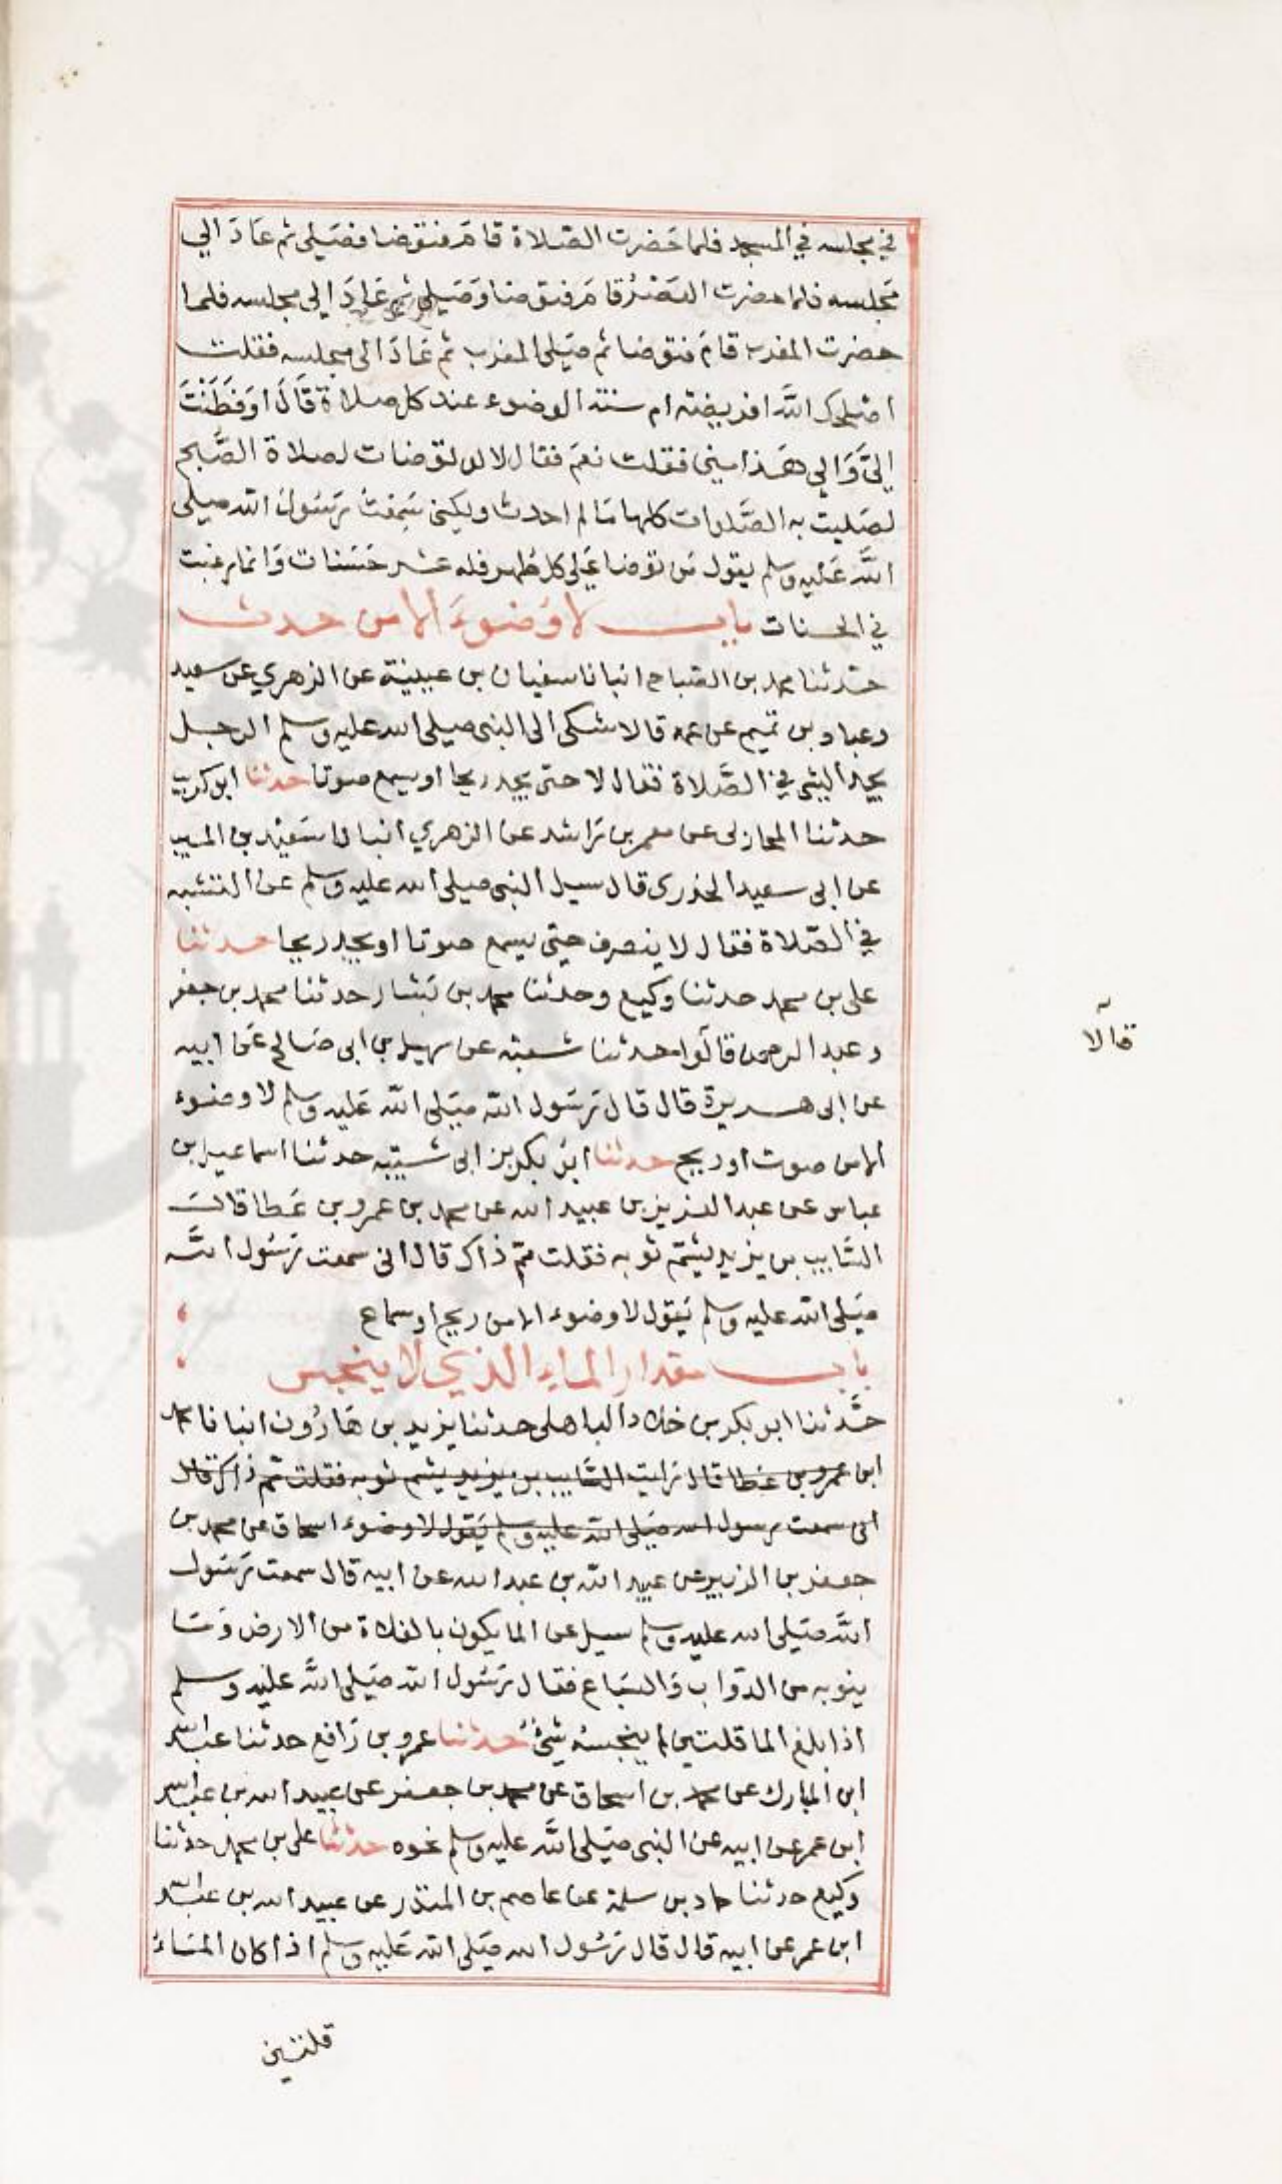 في مجلسه في المسجد فلما حَضرت الصّلاة قامَ فتوضا فصَلى ثم عَادَ الي
مَجلسه فلما حضرت العَصْرُ قامَ فتوضا وَصَلى ثم عَادَ إلى مجلسه فلما
حضرت المغرب قامَ فتوضا ثم صَلى المغرب ثم عَادَ الى مجلسه فقلت
اصْلحك اللَّه افريضة ام سنة الوضوء عند كل صلاة قَالَ اوَفَطَنْتَ
إليَّ وَالي هَذا مني فقلت نعَم فقال لا لو توضات لصلاة الصَّبح
لصَليت به الصَّلوات كلها مَا لم احدث ولكني سَمِعتُ رَسُولَ الله صلى
اللَّه عَليه وسلم يقول مَن توضا عَلى كل طُهر فله عشر حَسَنات وَانما رغبت
في الحسنات باب لا وُضوءَ الا من حدث
حَدثنا محمد بن الصَّباح انبانا سفيان بن عيينة عن الزهري عن سعيد
وعباد بن تميم عن عمه قالا شكى الى النبى صلى الله عليه وسلم الرجل
يجد الشي في الصَّلاة فقال لا حتى يجد ريحا او يسمع صوتا حدثنا ابو كريب
حدثنا المحازلى عن معمر بن رَاشد عن الزهري انبانا سَعيْد بن المسيب
عن ابي سعيد الخدرى قال سيل النبى صلى الله عليه وسلم عن التشبه
في الصّلاة فقال لا ينصرف حتى يسمع صوتا او يجد ريحا حدثنا
على بن محمد حدثنا وكيع وحدثنا محمد بن بَشار حدثنا محمد بن جعفر
وعبد الرحمن قالوا حدثنا شعبة عن سهيل بن ابى صَالح عَن ابيه
عن ابى هريرة قال قال رَسُول الله صَلى الله عَليه وسلم لا وضوء
الا من صوت او ريح حدثنا ابُو بكر بن ابى شَيبَة حدثنا اسماعيل بن
عباس عن عبد العزيز بن عبيد الله عن محمد بن عمرو بن عَطا قال رَايت
السَّايب بن يزيد يشُمّ ثوبه فقلت مِمّ ذاك قال انى سمعت رَسُول اللَّه
صَلى الله عليه وسلم يَقول لا وضوء الا من ريح او سماع
باب مقدار الماء الذي لا ينجس
حَدَّثنا ابو بكر بن خلاد الباهلى حدثنا يزيد بن هَارُون انبانا محمد
ابن عمرو بن عَطا قال رَايت السَّايب بن يزيد يشم ثوبه فقلت مم ذاك قال
انى سمعت رسول الله صَلى الله عليه وسلم يَقول لا وضوء اسحاق عن محمد بن
جعفر بن الزبير عن عبيد الله بن عبد الله عن ابيه قال سمعت رَسُول
اللَّه صَلى الله عليه وسلم سيل عن الما يكون بالفلاة من الارض وَمَا
ينوبه من الدوَّاب وَالسّبَاع فقال رَسُول الله صَلى اللَّه عليْه وسلم
اذا بلغ الما قلتين لم ينجسهُ شَيْءٌ حدثنا عمرو بن رَافع حدثنا عبد الله
ابن المبارك عن محمد بن اسحاق عن محمد بن جعفر عن عبيد الله بن عبد الله
ابن عمر عن ابيه عن النبى صَلى اللَّه عليه وسلم نحوه حدثنا على بن محمد حدثنا
وكيع حدثنا حماد بن سلمة عن عاصم بن المنذر عن عبيد الله بن عبد الله
ابن عمر عن ابيه قال قال رَسُول الله صَلى الله عَليه وسلم اذا كان المَاءُ
قالا
قلتين